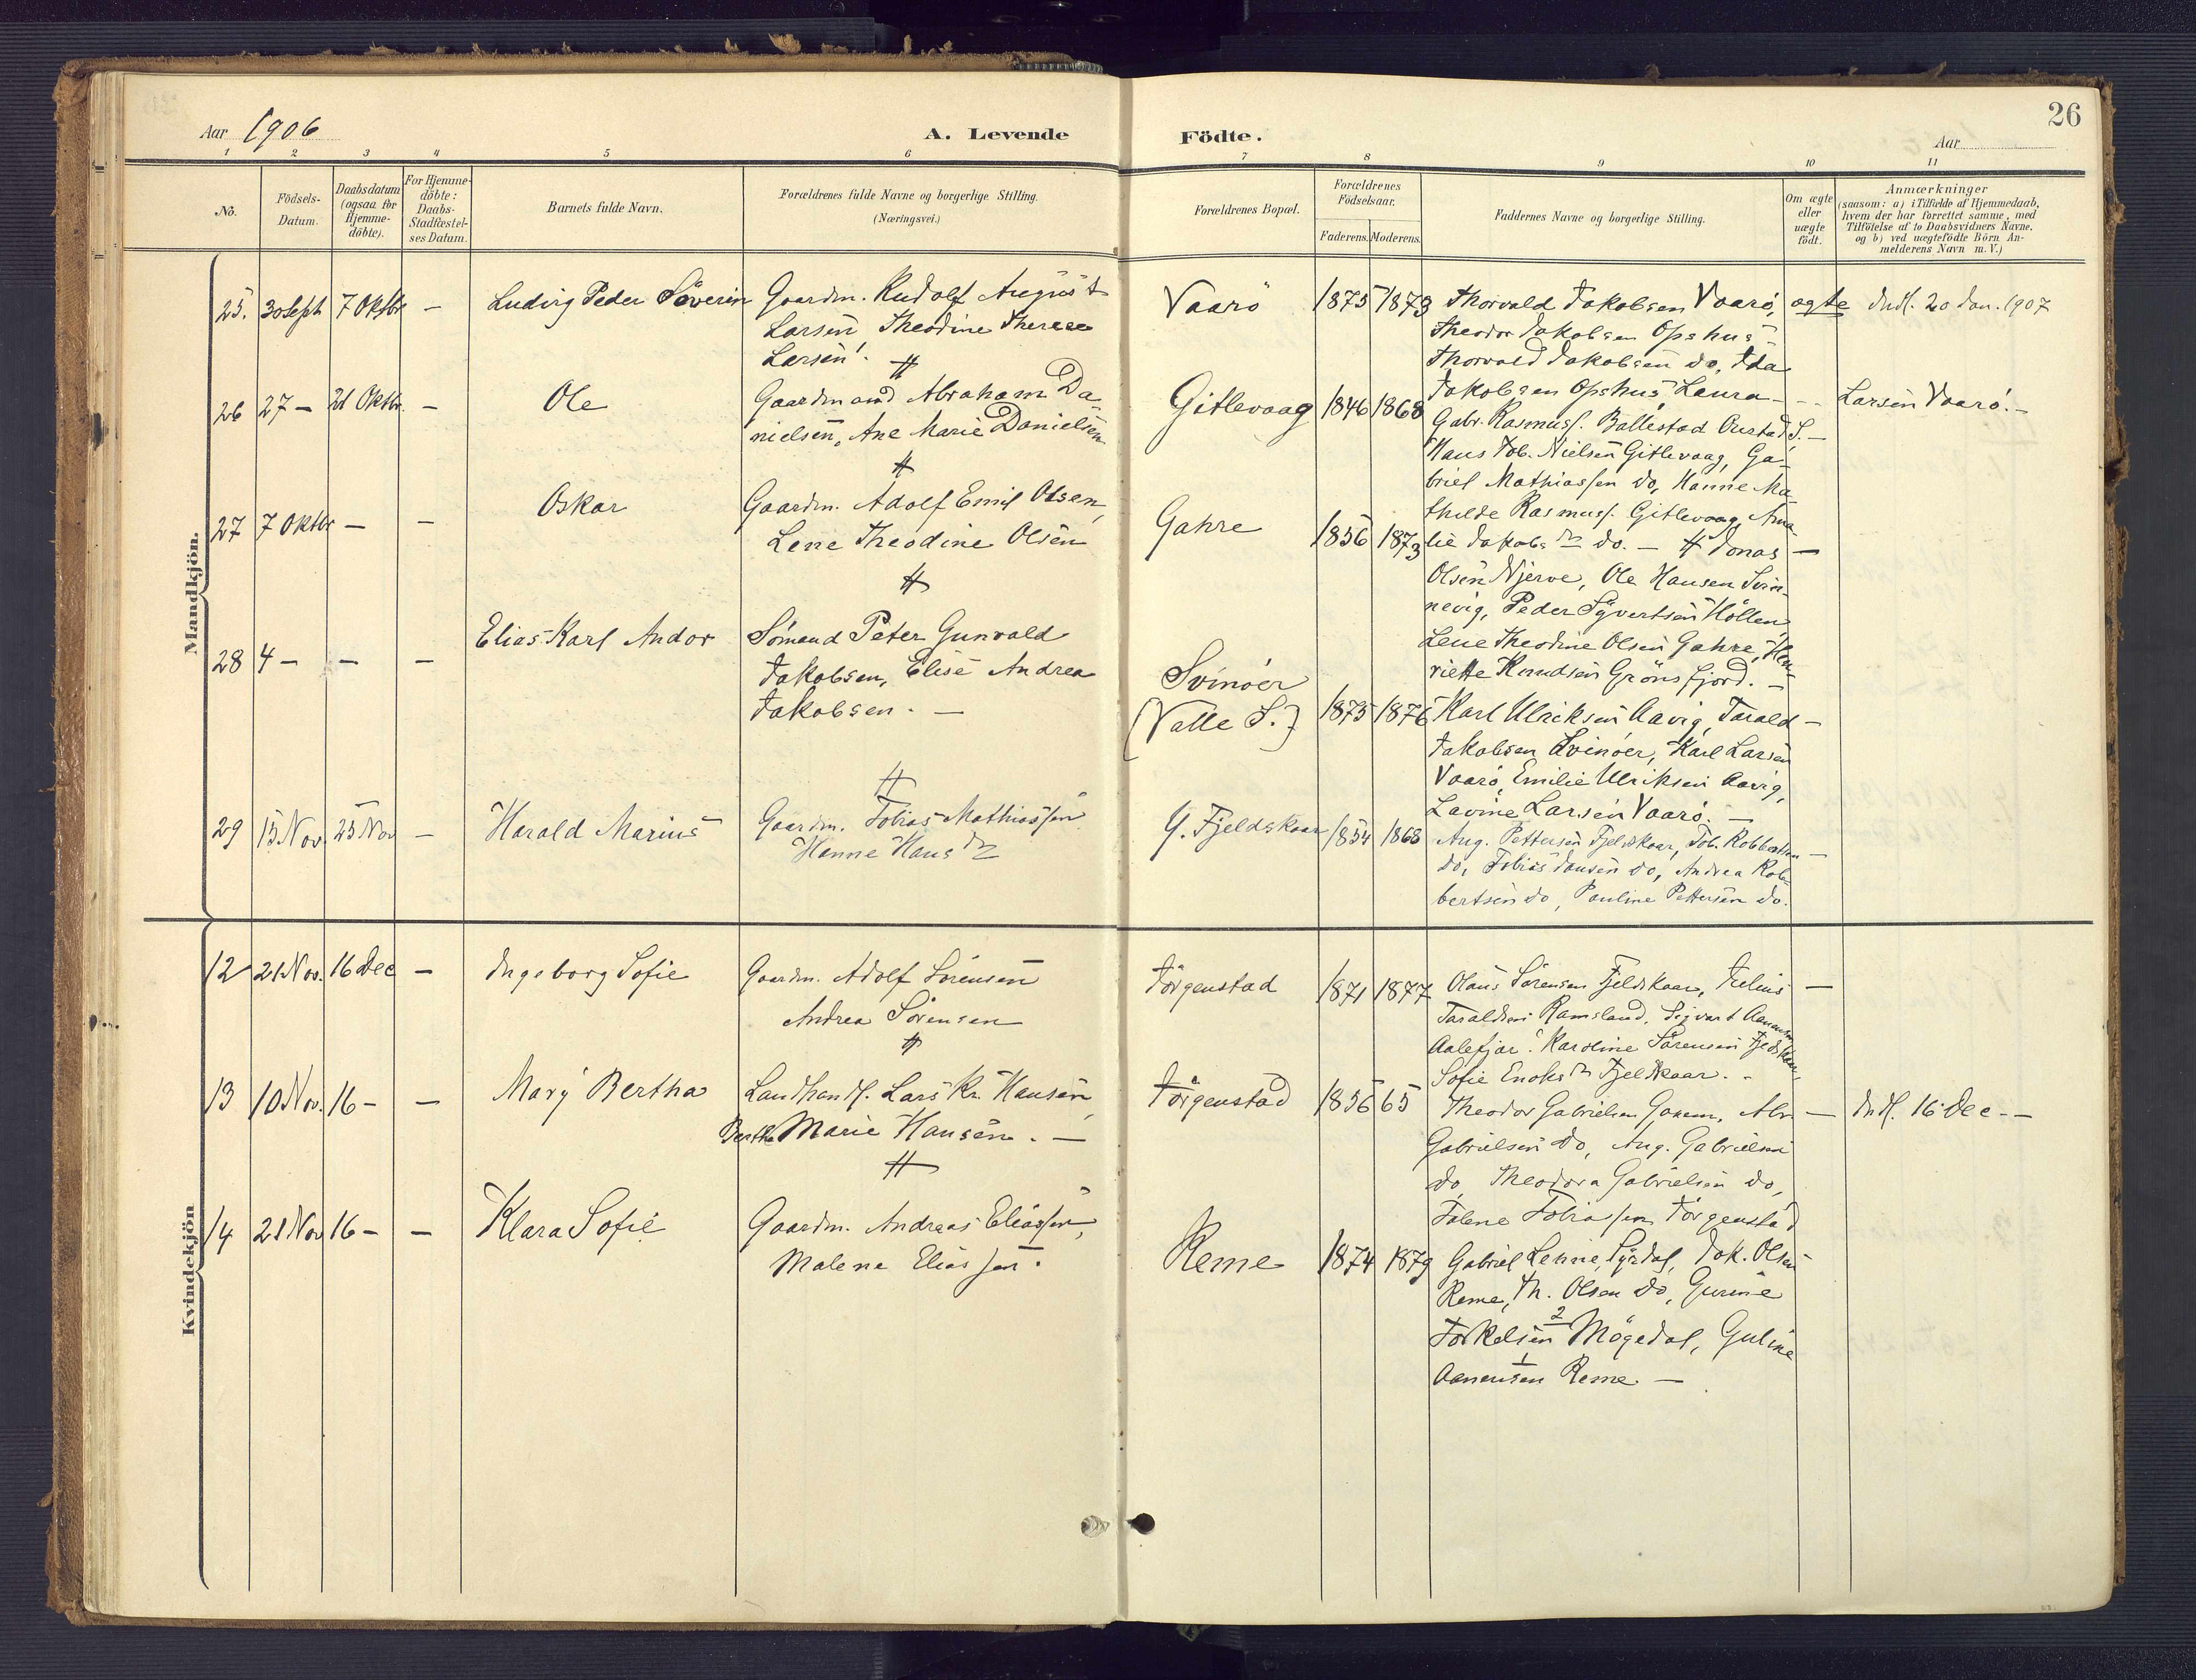 26
Aar 1906
A. Levende Födte.
Aar
1 2 3 4 5 6 7 8 9 10 11
No.
Födsels-Datum.
Daabsdatum (ogsaa for Hjemme-döbte).
For Hjemme-döbte: Daabs-Stadfæstel-ses Datum.
Barnets fulde Navn.
Forældrenes fulde Navne og borgerlige Stilling.
(Næringsvei.)
Forældrenes Bopæl.
Forældrenes Födselsaar.
Faderens. Moderens.
Faddernes Navne og borgerlige Stilling.
Om ægte eller uægte födt.
Anmærkninger
(saasom: a) i Tilfælde af Hjemmedaab,
hvem der har forrettet samme, med
Tilföielse af to Daabsvidners Navne,
og b) ved uægtefödte Börn An-
melderens Navn m. V.)
Mandkjön.
25. 30 Sept 7 Oktbr – Ludvig Peder Söverin
Gaardm. Rudolf August
Larsen, Theodine Therese
Larsen.
Vaarö 1875 1873
Thorvald Jakobsen Vaarö,
Theodor Jakobsen Opshus
Thorvald Jakobsen do, Ida
Jakobsen Opshus, Laura
ægte
Indf. 20 Jan. 1907
Larsen Vaarö. –
26 27 – 21 Oktbr. – Ole
Gaardmand Abraham Da-
nielsen, Ane Marie Danielsen
Gitlevaag 1846 1868
Gabr. Rasmuss. Ballestad S. –
Hans Tob. Nielsen Gitlevaag, Ga-
briel Mathiassen do, Hanne Ma-
thilde Rasmuss. Gitlevaag, Ama-
lie Jakobs do. –
27 7 Oktbr – – Oskar
Gaardm. Adolf Emil Olsen,
Lene Theodine Olsen
Gahre 1856 1873
Jonas –
Olsen Njerve, Ole Hansen Svin-
nevig, Peder Syvertsen Höllen
Lene Theodine Olsen Gahre, Hen-
riette Knudsen Grönsfjord. –
28 4 – – – Elias Karl Andor
Sömand Peter Gunvald
Jakobsen, Elise Andrea
Jakobsen. –
Svinöer
(Valle S.) 1875 1876
Karl Ulriksen Aavig, Tarald –
Jakobsen Svinöer, Karl Larsen
Vaarö, Emilie Ulriksen Aavig,
Lavine Larsen Vaarö. –
29 15 Nov. 25 Nov – Harald Marius
Gaardm. Tobias Mathiassen
Hanne Hans
Y. Fjeldskaar 1854 1868
Aug. Pettersen Fjeldskaar, Tob. Robbertsen –
do, Tobias Jansen do, Andrea Rob-
bertsen do, Pauline Pettersen do.
Kvindekjön
12 21 Nov. 16 Dec – Ingeborg Sofie
Gaardm. Adolf Sörensen
Andrea Sörensen
Jörgenstad 1871 1877
Olaus Sörensen Fjeldskaar, Julius –
Taraldsen Ramsland, Sigvart Aanensen
Aalefjær. Karoline Sörensen Fjeldskaar,
Sofie Enoks Fjeldskaar. –
13 10 Nov. 16 – – Mary Bertha
Landhandl. Lars Kr. Hansen
Berthe Marie Hansen. –
Jörgenstad 1856 65
Theodor Gabrielsen, Abr –
Gabrielsen do, Aug. Gabrielsen
do, Theodora Gabrielsen do,
Tobiassen Jörgenstad
Indf. 16 Dec – –
14 21 Nov 16 – – Klara Sofie
Gaardm. Andreas Eliassen,
Malene Eliassen.
Reme 1874 1879
Gabriel Lehne, Syrdal, Jak. Olsen
Reme, Th. Olsen do, Gurine
Torkelsen 2 Mögedal, Guline
Aanensen 1 Reme. –